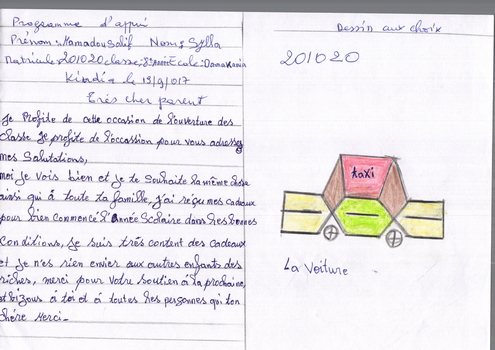 Programme d'appui
Prénom: Mamadou Salif Nom: Sylla
Matricule: 201020 classe: 8ème Année Ecole: Damakania
Kindia le 13/9/017
Très cher parent
Je Profite de cette occasion de l'ouverture des
classe Je profite de l'occassion pour vous adresse
mes Salutations,
moi je vois bien et je te Souhaite la même chose
ainsi qui à toute ta famille, j'ai reçu mes cadeaux
pour bien commencé l'Année Scolaire dans les bonnes
Conditions, Je suis très content des cadeaux
et je n'es rien envier aux autres enfants des
riches, merci pour Votre soutien à la prochaine,
et bizous à toi et à toutes les personnes qui t'on
chère Merci-
Dessin aux choix
201020
taxi
La Voiture